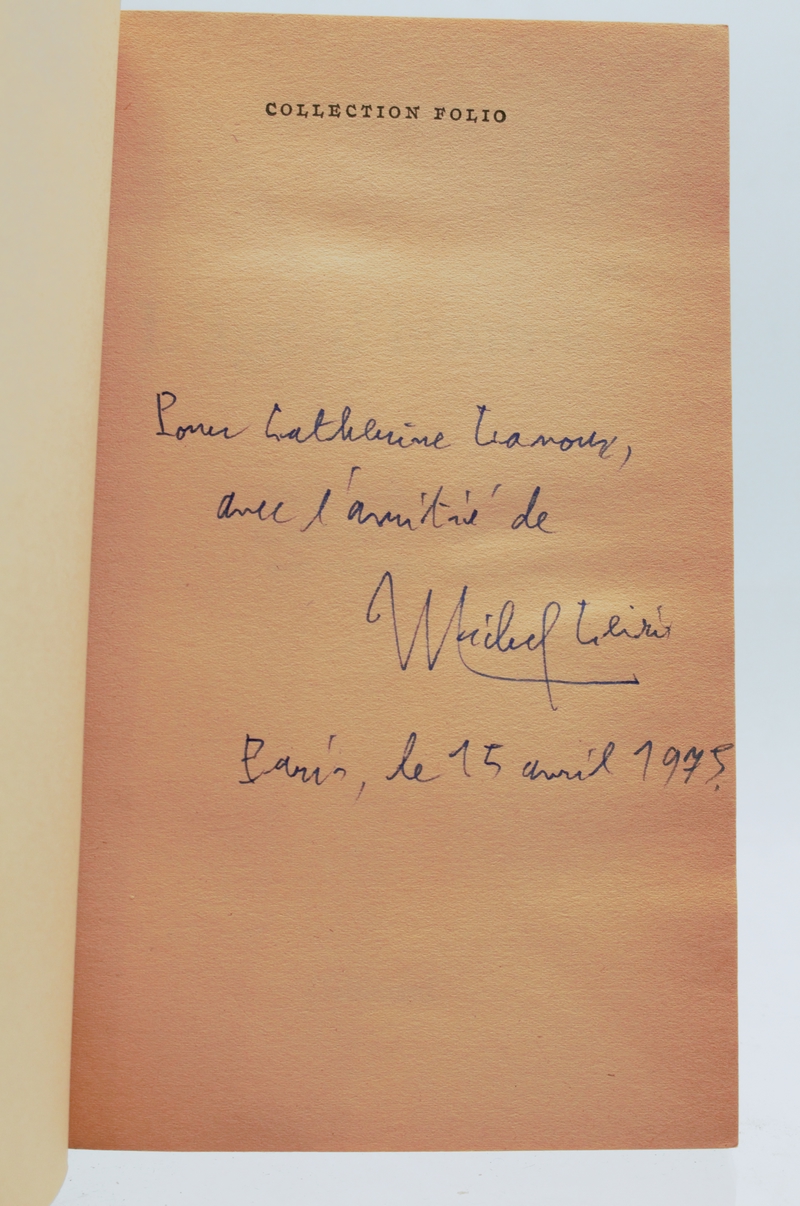 COLLECTION FOLIO
Pour Catherine
avec l'amitié de
Michel Leiris
Paris, le 15 avril 1975.